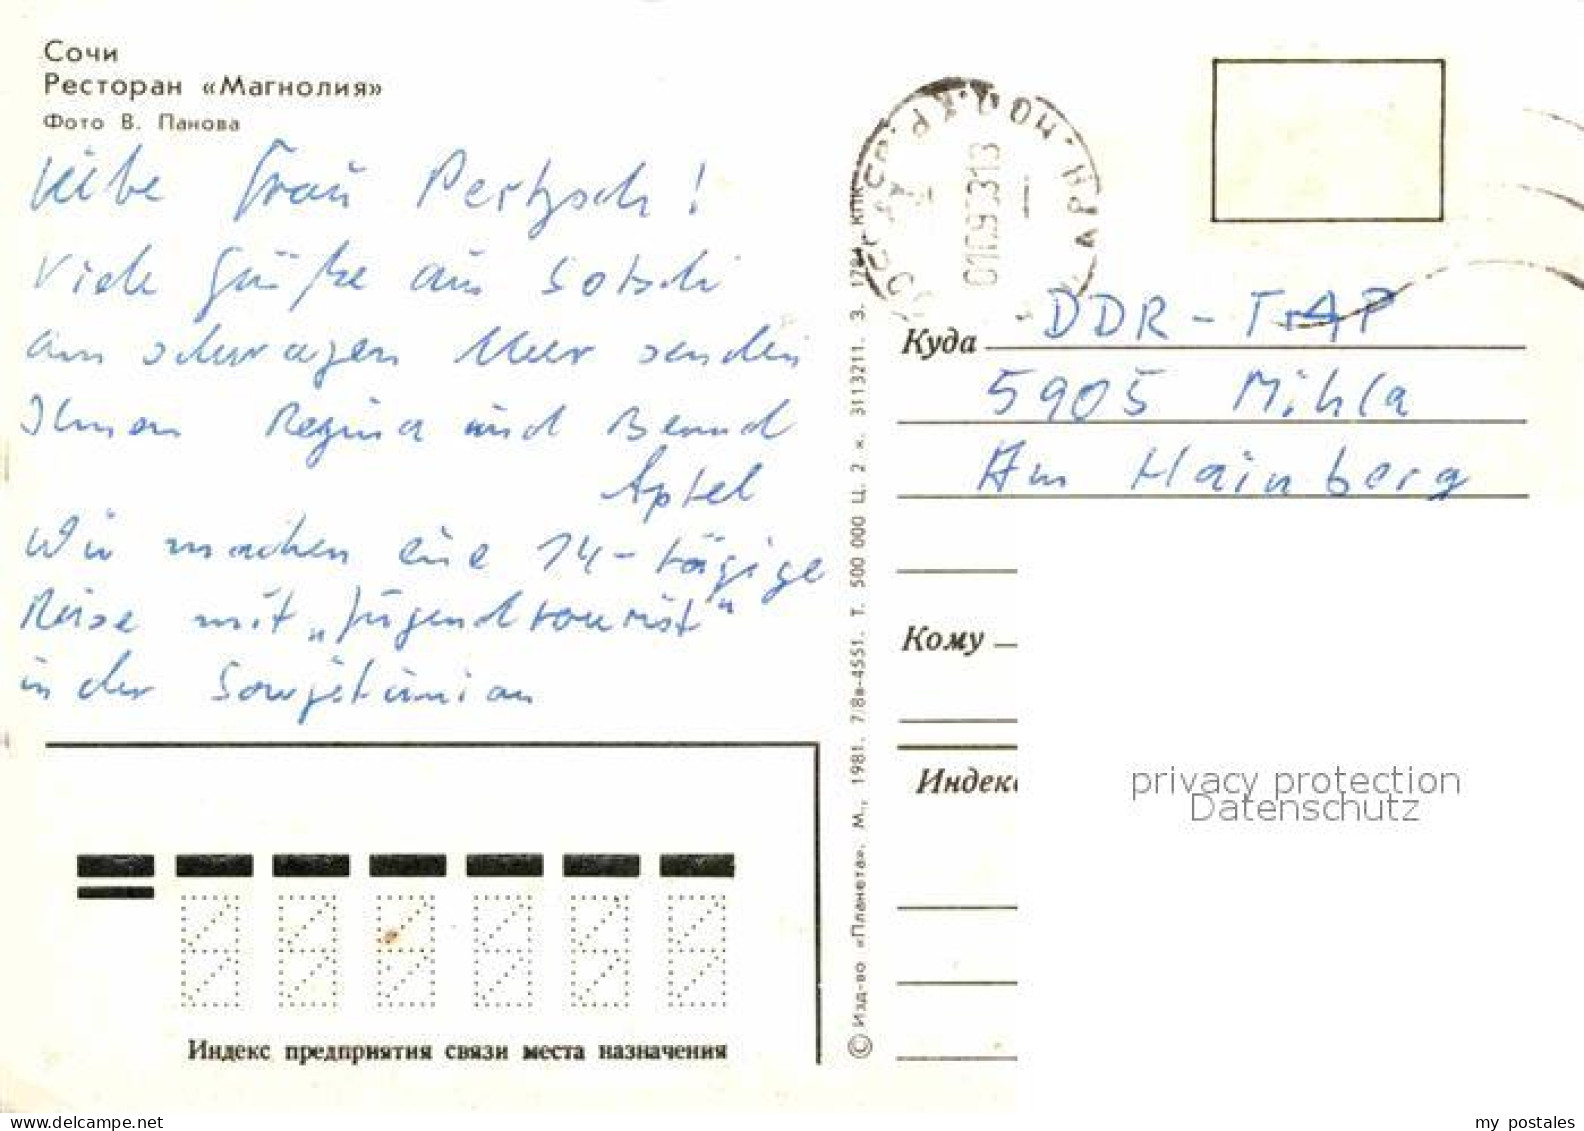 Сочи
Ресторан «Магнолия»
Фото В. Панова
Liebe Frau Pertzsch!
Viele Grüße aus Sotschi
am schwarzen Meer senden
Ihnen Regina und Bernd
Aptel
Wir machen eine 14-tägige
Reise mit „Jugendtourist"
in der Sowjetunion
Индекс предприятия связи места назначения
© Изд-во «Планета». М., 1981. 7/8в-4551. Т. 500 000 Ц. 2 к. 3113211. З. КПК
Куда DDR -
5905 Mihla
Am Hainberg
Кому
Индекс
privacy protection
Datenschutz
my postales